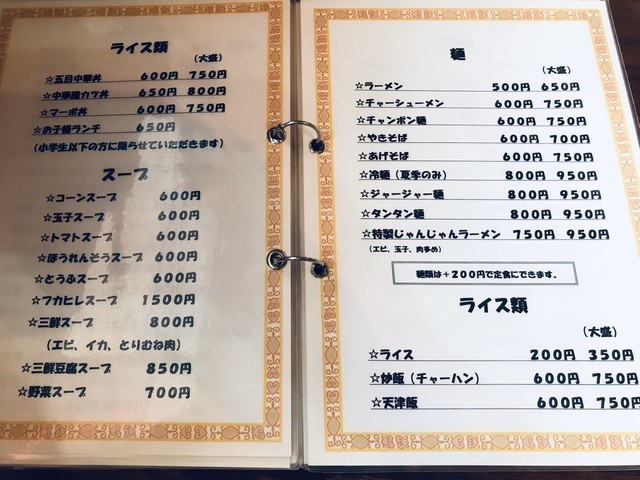 ライス類
(大盛)
☆五目中華丼 600円 750円
☆中華風カツ丼 650円 800円
☆マーボ丼 600円 750円
☆お子様ランチ 650円
(小学生以下の方に限らせていただきます)
スープ
☆コーンスープ 600円
☆玉子スープ 600円
☆トマトスープ 600円
☆ほうれんそうスープ 600円
☆とうふスープ 600円
☆フカヒレスープ 1500円
☆三鮮スープ 800円
(エビ、イカ、とりむね肉)
☆三鮮豆腐スープ 850円
☆野菜スープ 700円
麺
(大盛)
☆ラーメン 500円 650円
☆チャーシューメン 600円 750円
☆チャンポン麺 600円 750円
☆やきそば 600円 700円
☆あげそば 600円 750円
☆冷麺(夏季のみ) 800円 950円
☆ジャージャー麺 800円 950円
☆タンタン麺 800円 950円
☆特製じゃんじゃんラーメン 750円 950円
(エビ、玉子、肉多め)
麺類は+200円で定食にできます。
ライス類
(大盛)
☆ライス 200円 350円
☆炒飯(チャーハン) 600円 750円
☆天津飯 600円 750円